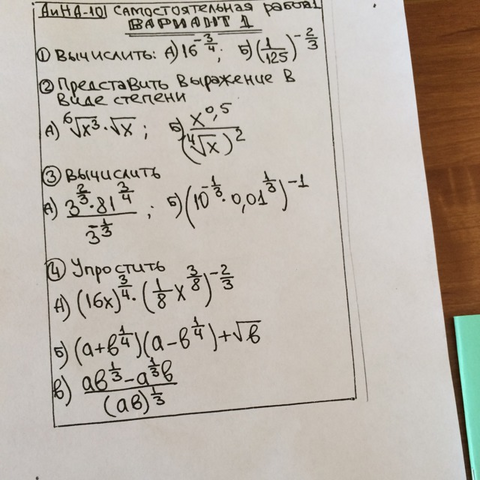 АиНА-10 Самостоятельная работа1
ВАРИАНТ 1
① Вычислить: А) 16^{-3/4}; Б) (1/125)^{-2/3}
② Представить выражение в
виде степени
А) ⁶√x³ · √x; Б) x^{0,5} / (⁴√x)²
③ Вычислить
А) (3^{2/3} · 81^{3/4}) / 3^{-1/3}; Б) (10^{-1/3} · 0,01^{1/3})^{-1}
④ Упростить
А) (16x)^{3/4} · (1/8 x^{3/8})^{-2/3}
Б) (a+b^{1/4})(a-b^{1/4})+√b
В) (ab^{1/3} - a^{1/3}b) / (ab)^{1/3}